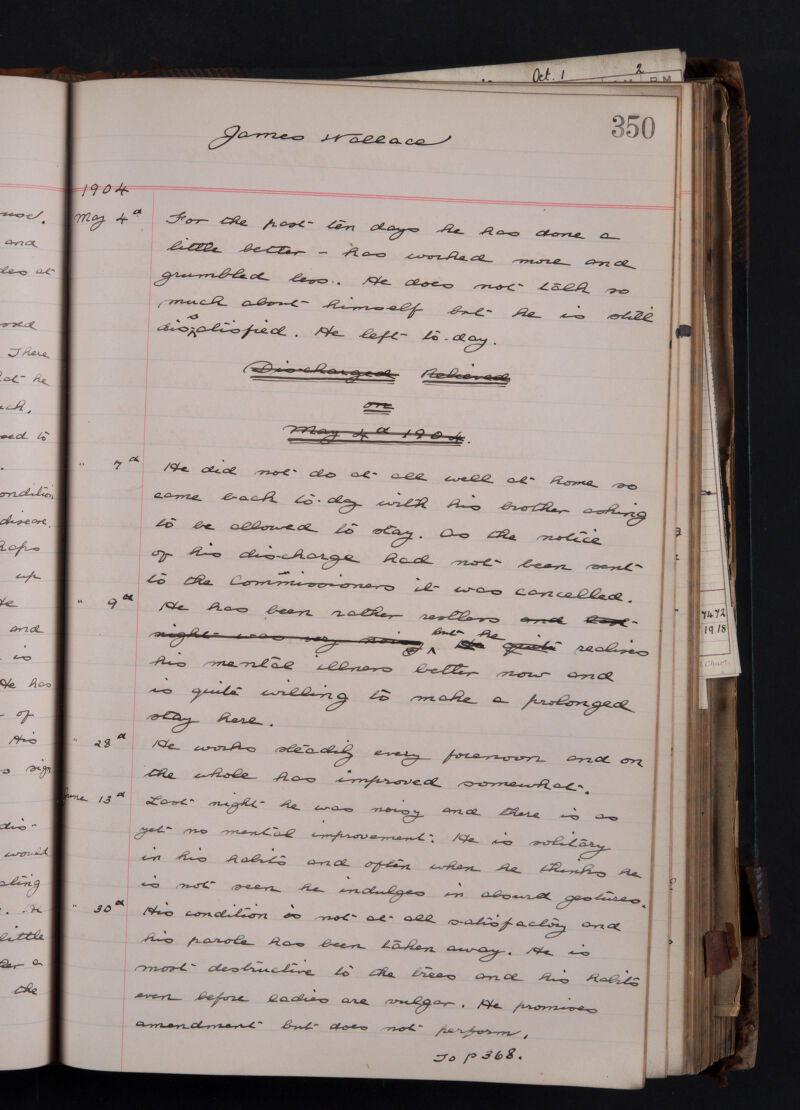 Oct. 1 2
P M
350
James Wallace
1904
May 4th For the past ten days he has done a
little better - has worked more and
grumbled less. He does not talk so
much about himself but he is still
dissatisfied. He left to-day.
Discharged Relieved
on
May 4th 1904.
" 7th He did not do at all well at home so
came back to-day with his brother asking
to be allowed to stay. As the notice
of his discharge had not been sent
to the Commissioners it was cancelled.
" 9th He has been rather restless and last
night was very noisy but he He quite realises
his mental illness better now and
is quite willing to make a prolonged
stay here.
" 28th He works steadily every forenoon and on
the whole has improved somewhat.
June 13th Last night he was noisy and there is as
yet no mental improvement. He is solitary
in his habits and often when he thinks he
is not seen he indulges in absurd gestures.
" 30th His condition is not at all satisfactory and
his parole has been taken away. He is
most destructive to the trees and his habits
even before ladies are vulgar. He promises
amendment but does not perform.
To p 368.
and
There
and
is
He has
of
His
would
He
little
the
7472
1918
Chart.